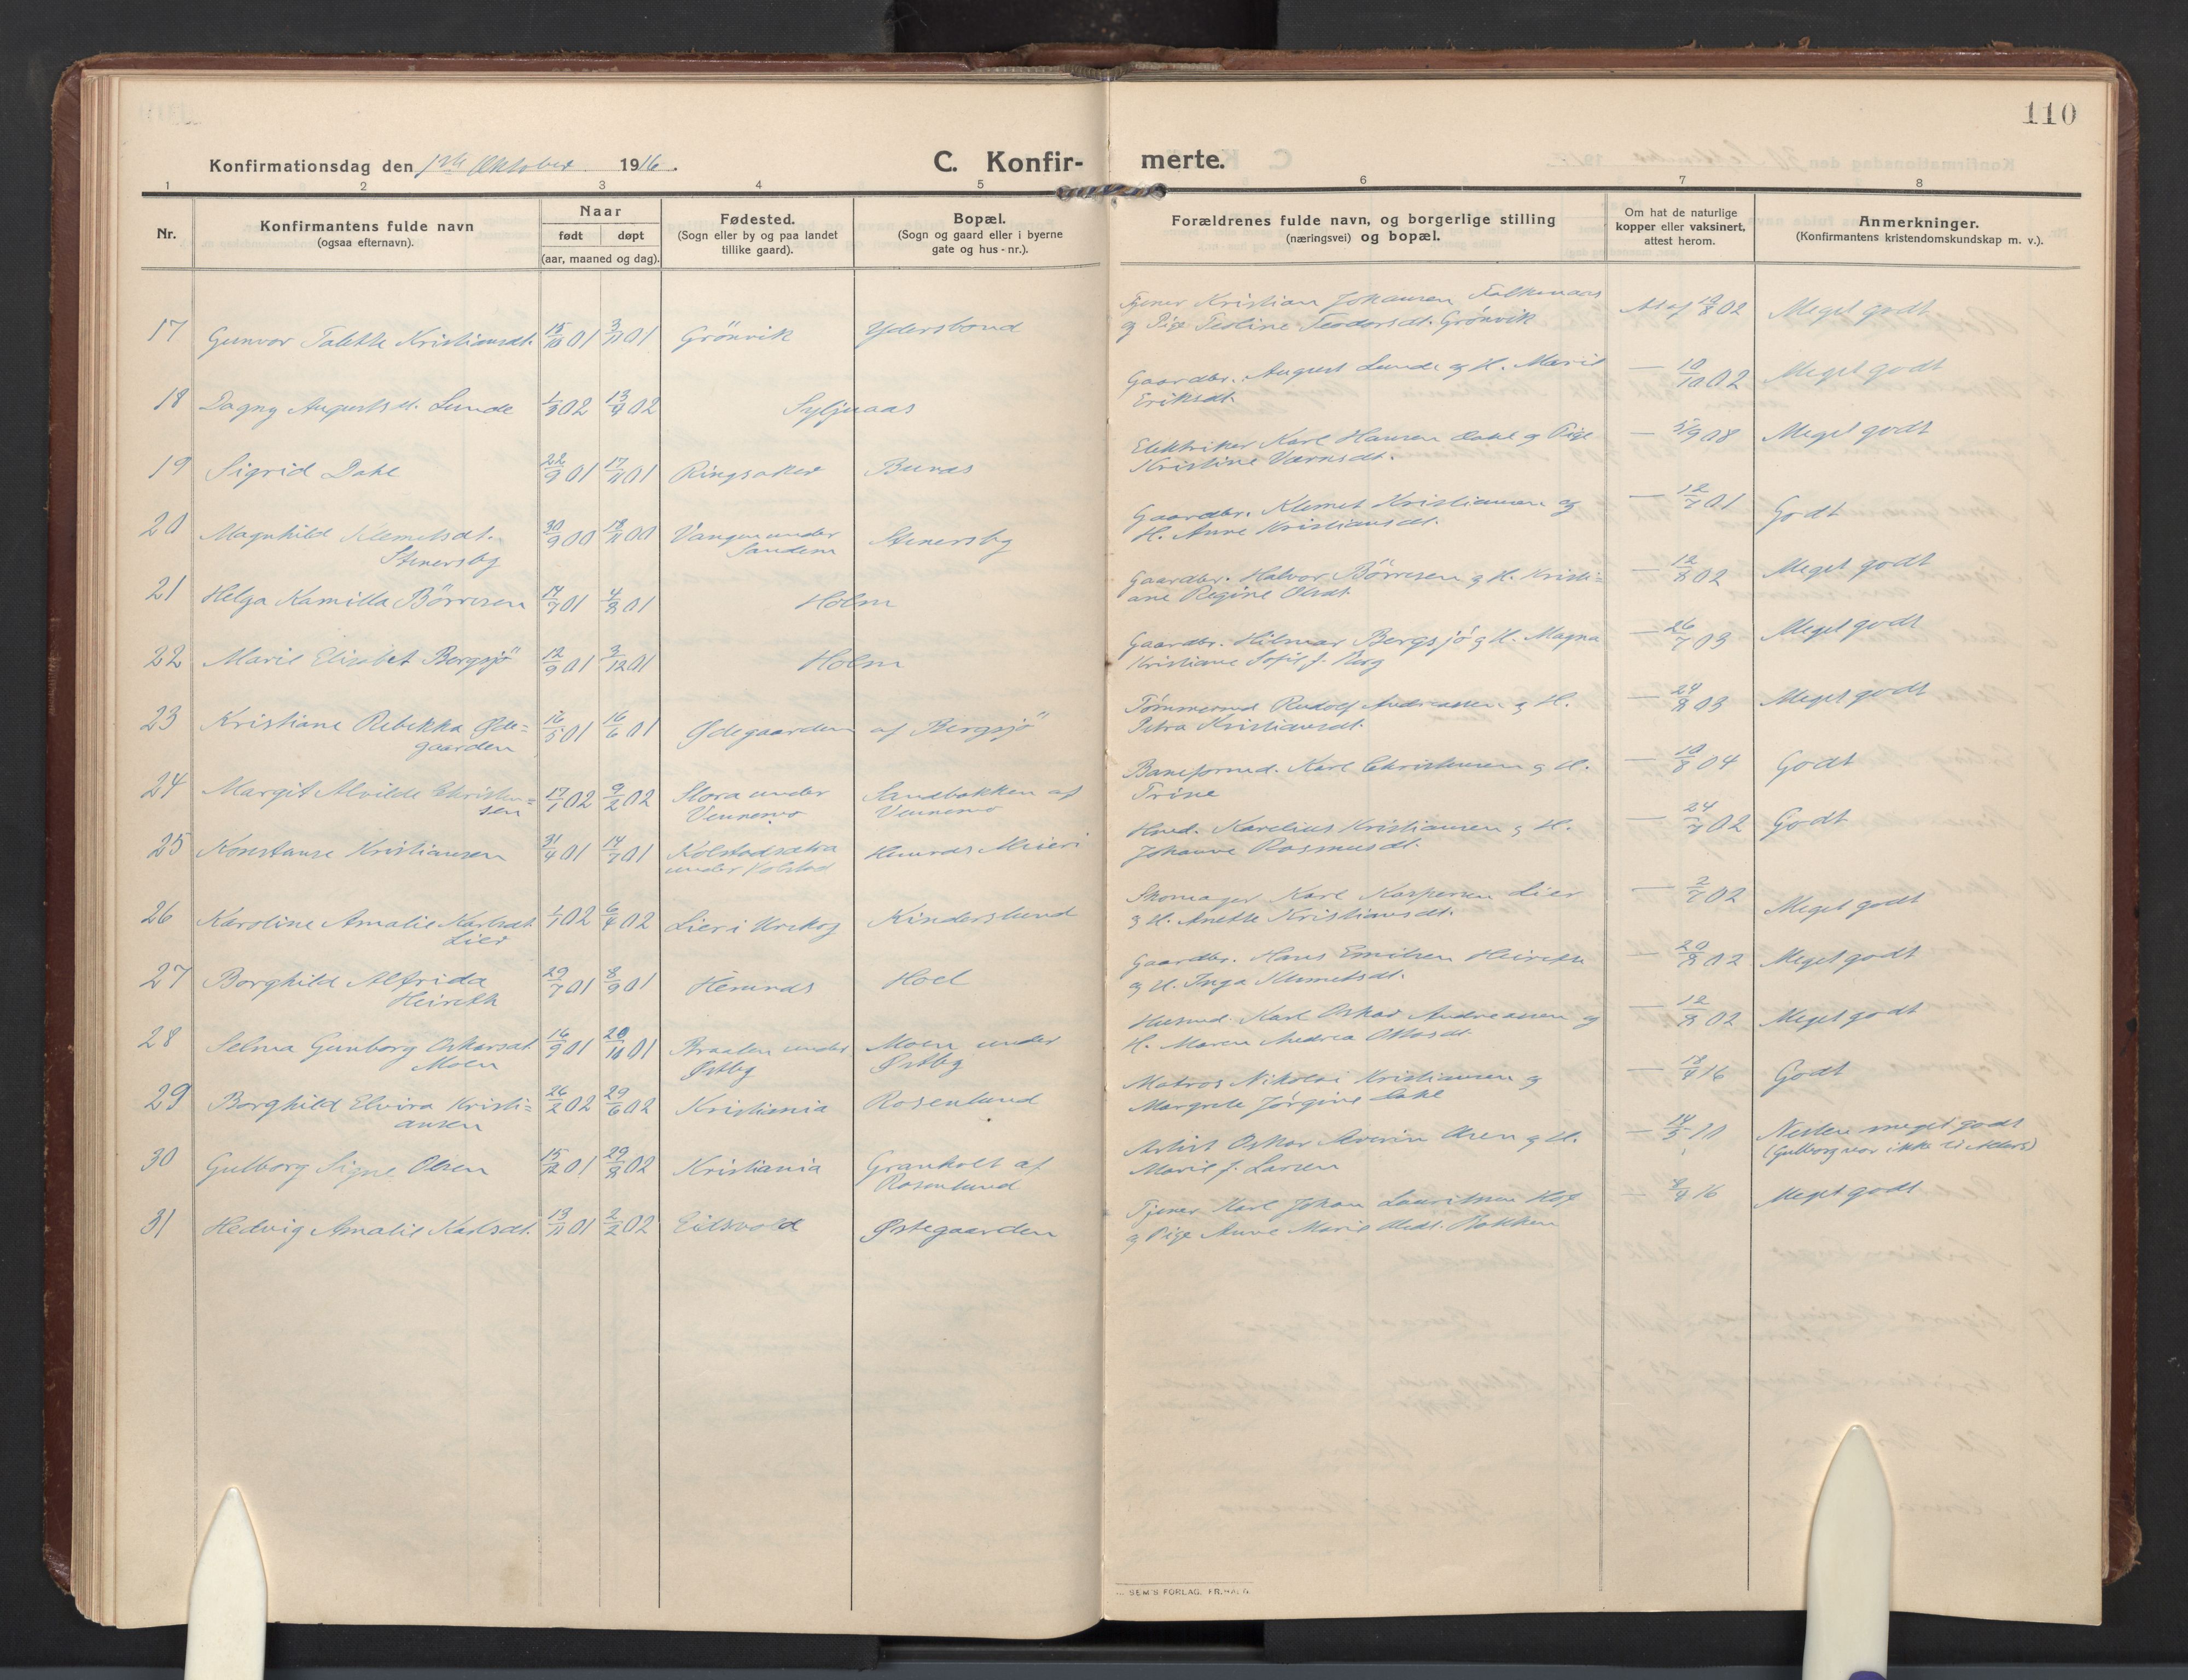 110
Konfirmationsdag den 1ste Oktober 1916.
C. Konfir- merte.
1 2 3 4 5 6 7 8
Nr.
Konfirmantens fulde navn
(ogsaa efternavn).
Naar
født døpt
(aar, maaned og dag).
Fødested.
(Sogn eller by og paa landet
tillike gaard).
Bopæl.
(Sogn og gaard eller i byerne
gate og hus-nr.).
Forældrenes fulde navn, og borgerlige stilling
(næringsvei) og bopæl.
Om hat de naturlige
kopper eller vaksinert,
attest herom.
Anmerkninger.
(Konfirmantens kristendomskundskap m. v.).
17 Gunvor Talette Kristiansdt. 15/10 01 3/11 01 Grönvik Ydersbond
Tjener Kristian Johansen Falkenaas
og Pige Teoline Teodorsdt. Grönvik
At af 19/8 02 Meget godt
18 Dagny Augustsdt. Lunde 1/3 02 13/4 02 Syljuaas
Gaardbr. August Lunde og H. Marie
Eriksdt.
— 10/10 02 Meget godt
19 Sigrid Dahl 22/9 01 17/11 01 Ringsaker Buraas
Elektriker Karl Hansen Dahl og Pige
Kristine
— 5/9 08 Meget godt
20 Magnhild Klemetsdt.
Stenersby
30/9 00 18/11 00 Vangen under
Sandem
Stenersby
Gaardbr. Klemet Kristiansen og
H. Anne Kristiansdt.
— 12/7 01 Godt
21 Helga Kamilla Börresen 14/7 01 4/8 01 Holm
Gaardbr. Halvor Börresen og H. Kristi=
ane Regine Olsdt.
— 12/8 02 Meget godt
22 Marie Elisabet Bergsjö 12/9 01 3/12 01 Holm
Gaardbr. Hilmar Bergsjö og H. Magna
Kristiane Sofie f. Berg
— 26/7 03 Meget godt
23 Kristiane Rebekka Øde=
gaarden
16/5 01 16/6 01 Ødegaarden af Bergsjö
Tømmermd Rudolf Andreassen og H.
Petra Kristiansdt.
— 24/8 03 Meget godt
24 Margit Alvilde Christen=
sen
17/1 02 9/2 02 Slora under
Vennemo
Sandbakken af
Vennemo
Baneformd. Karl Christensen og H.
Trine
— 10/8 04 Godt
25 Konstanse Kristiansen 31/4 01 14/7 01 Kolstadsætra
under Kolstad
Hemnæs Meieri
Hmd. Karelius Kristiansen og H.
Johanne Rasmusdt.
— 24/7 02 Godt
26 Karoline Amalie Karlsdt.
Lier
1/1 02 6/4 02 Lier i Urskog Kinderslund
Skomager Karl Kaspersen Lier
og H. Anette Kristiansdt.
— 2/7 02 Meget godt
27 Borghild Alfrida
Heireth
29/7 01 8/9 01 Hemnæs Hoel
Gaardbr. Hans Emilsen Heireth
og H. Inga Klemetsdt.
— 20/8 02 Meget godt
28 Selma Gunborg Oskarsdt.
Moen
16/9 01 20/10 01 Braaten under
Østby
Moen under
Østby
Husmd. Karl Oskar Andreassen og
H. Maren Andrea Olsdt.
— 12/8 02 Meget godt
29 Borghild Elvira Kristi=
ansen
26/2 02 29/6 02 Kristiania Rosenlund
Matros Nikolai Kristiansen og
Margrete Jørgine
— 18/4 16 Godt
30 Gulborg Signe Olsen 15/2 01 29/8 02 Kristiania Granholt af
Rosenlund
Artist Oskar Olsen og H.
Marie f. Larsen
— 14/5 11 Nesten meget godt
(Gulborg var ikke til Alters)
31 Hedvig Amalie Karlsdt. 13/11 01 2/2 02 Eidsvold Østegaarden
Tjener Karl Johan Lauritsen Hof
og Pige Anne Marie Olsdt. Bakken
— 8/4 16 Meget godt
SEM'S FORLAG. FR.HALD.